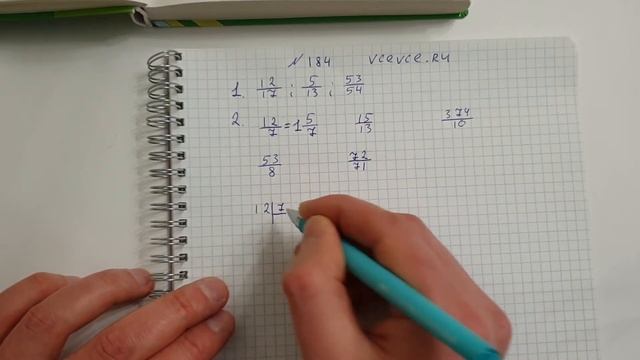 № 184 vcevce.ru
1. 12/17 ; 5/13 ; 53/54
2. 12/7 = 1 5/7 15/13 374/10
53/8 72/71
12 | 7